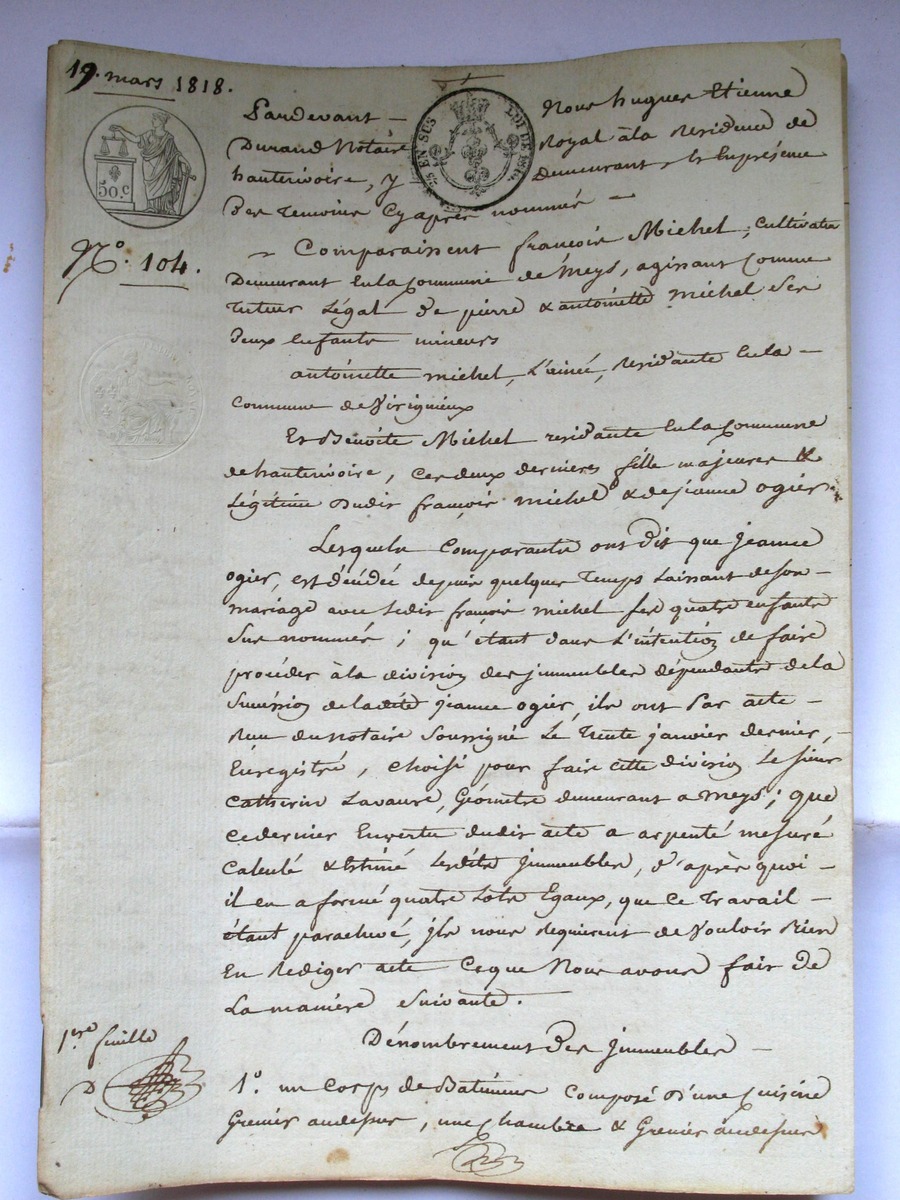 19. mars 1818.
50. c
25 EN SUS LOI DE 1816.
N.º 104.
Pardevant – Nous hugues Etienne
Durand Notaire Royal àla Residence de
hauterivoire, y Demeurant & En présence
Des temoins Cy après nommés –
– Comparaissent françois Michel, Cultivateur
Demeurant Enla Commune de Meys, agissant Comme
tuteur Légal de pierre & antoinette Michel Ses
Deux Enfants mineurs
antoinette michel, L'ainée, residante Enla –
Commune de Virigneux
Et Benoite Michel residante Enla Commune
de hauterivoire, Ces deux dernieres fille majeures &
Légitime Dudit françois michel & de jeanne ogier
Lesquels Comparants ont Dit que Jeanne
ogier, est décédée depuis quelque Temps Laissant de son –
mariage avec Ledit françois michel Les quatre enfants
Sus nommés ; qu'étant dans L'inténtion de faire
procéder à la division des jmmeubles dépendants de la
Succéssion de ladite jeanne ogier, ils ont Par acte –
Reçu du notaire Soussigné Le Trente janvier dernier, –
Enregistré, choisi pour faire cette division Le Sieur
Catherin Lavaure, Géomètre demeurant a Meys ; que
ce dernier En vertu dudit acte a arpenté mesuré
Calculé & Estimé Lesdits jmmeubles, d'après quoi –
il en a formé quatre Lots Egaux, que Ce travail –
étant parachevé, jls nous requierent de Vouloir Bien
En Rediger acte Ceque Nous avons fait de
La maniére Suivante.
Dénombrement Des jmmeubles –
1.º un Corps de Batiments Composé D'une Cuisine
Grenier audessus, une Chambre & Grenier audessus
1ere feuille
D